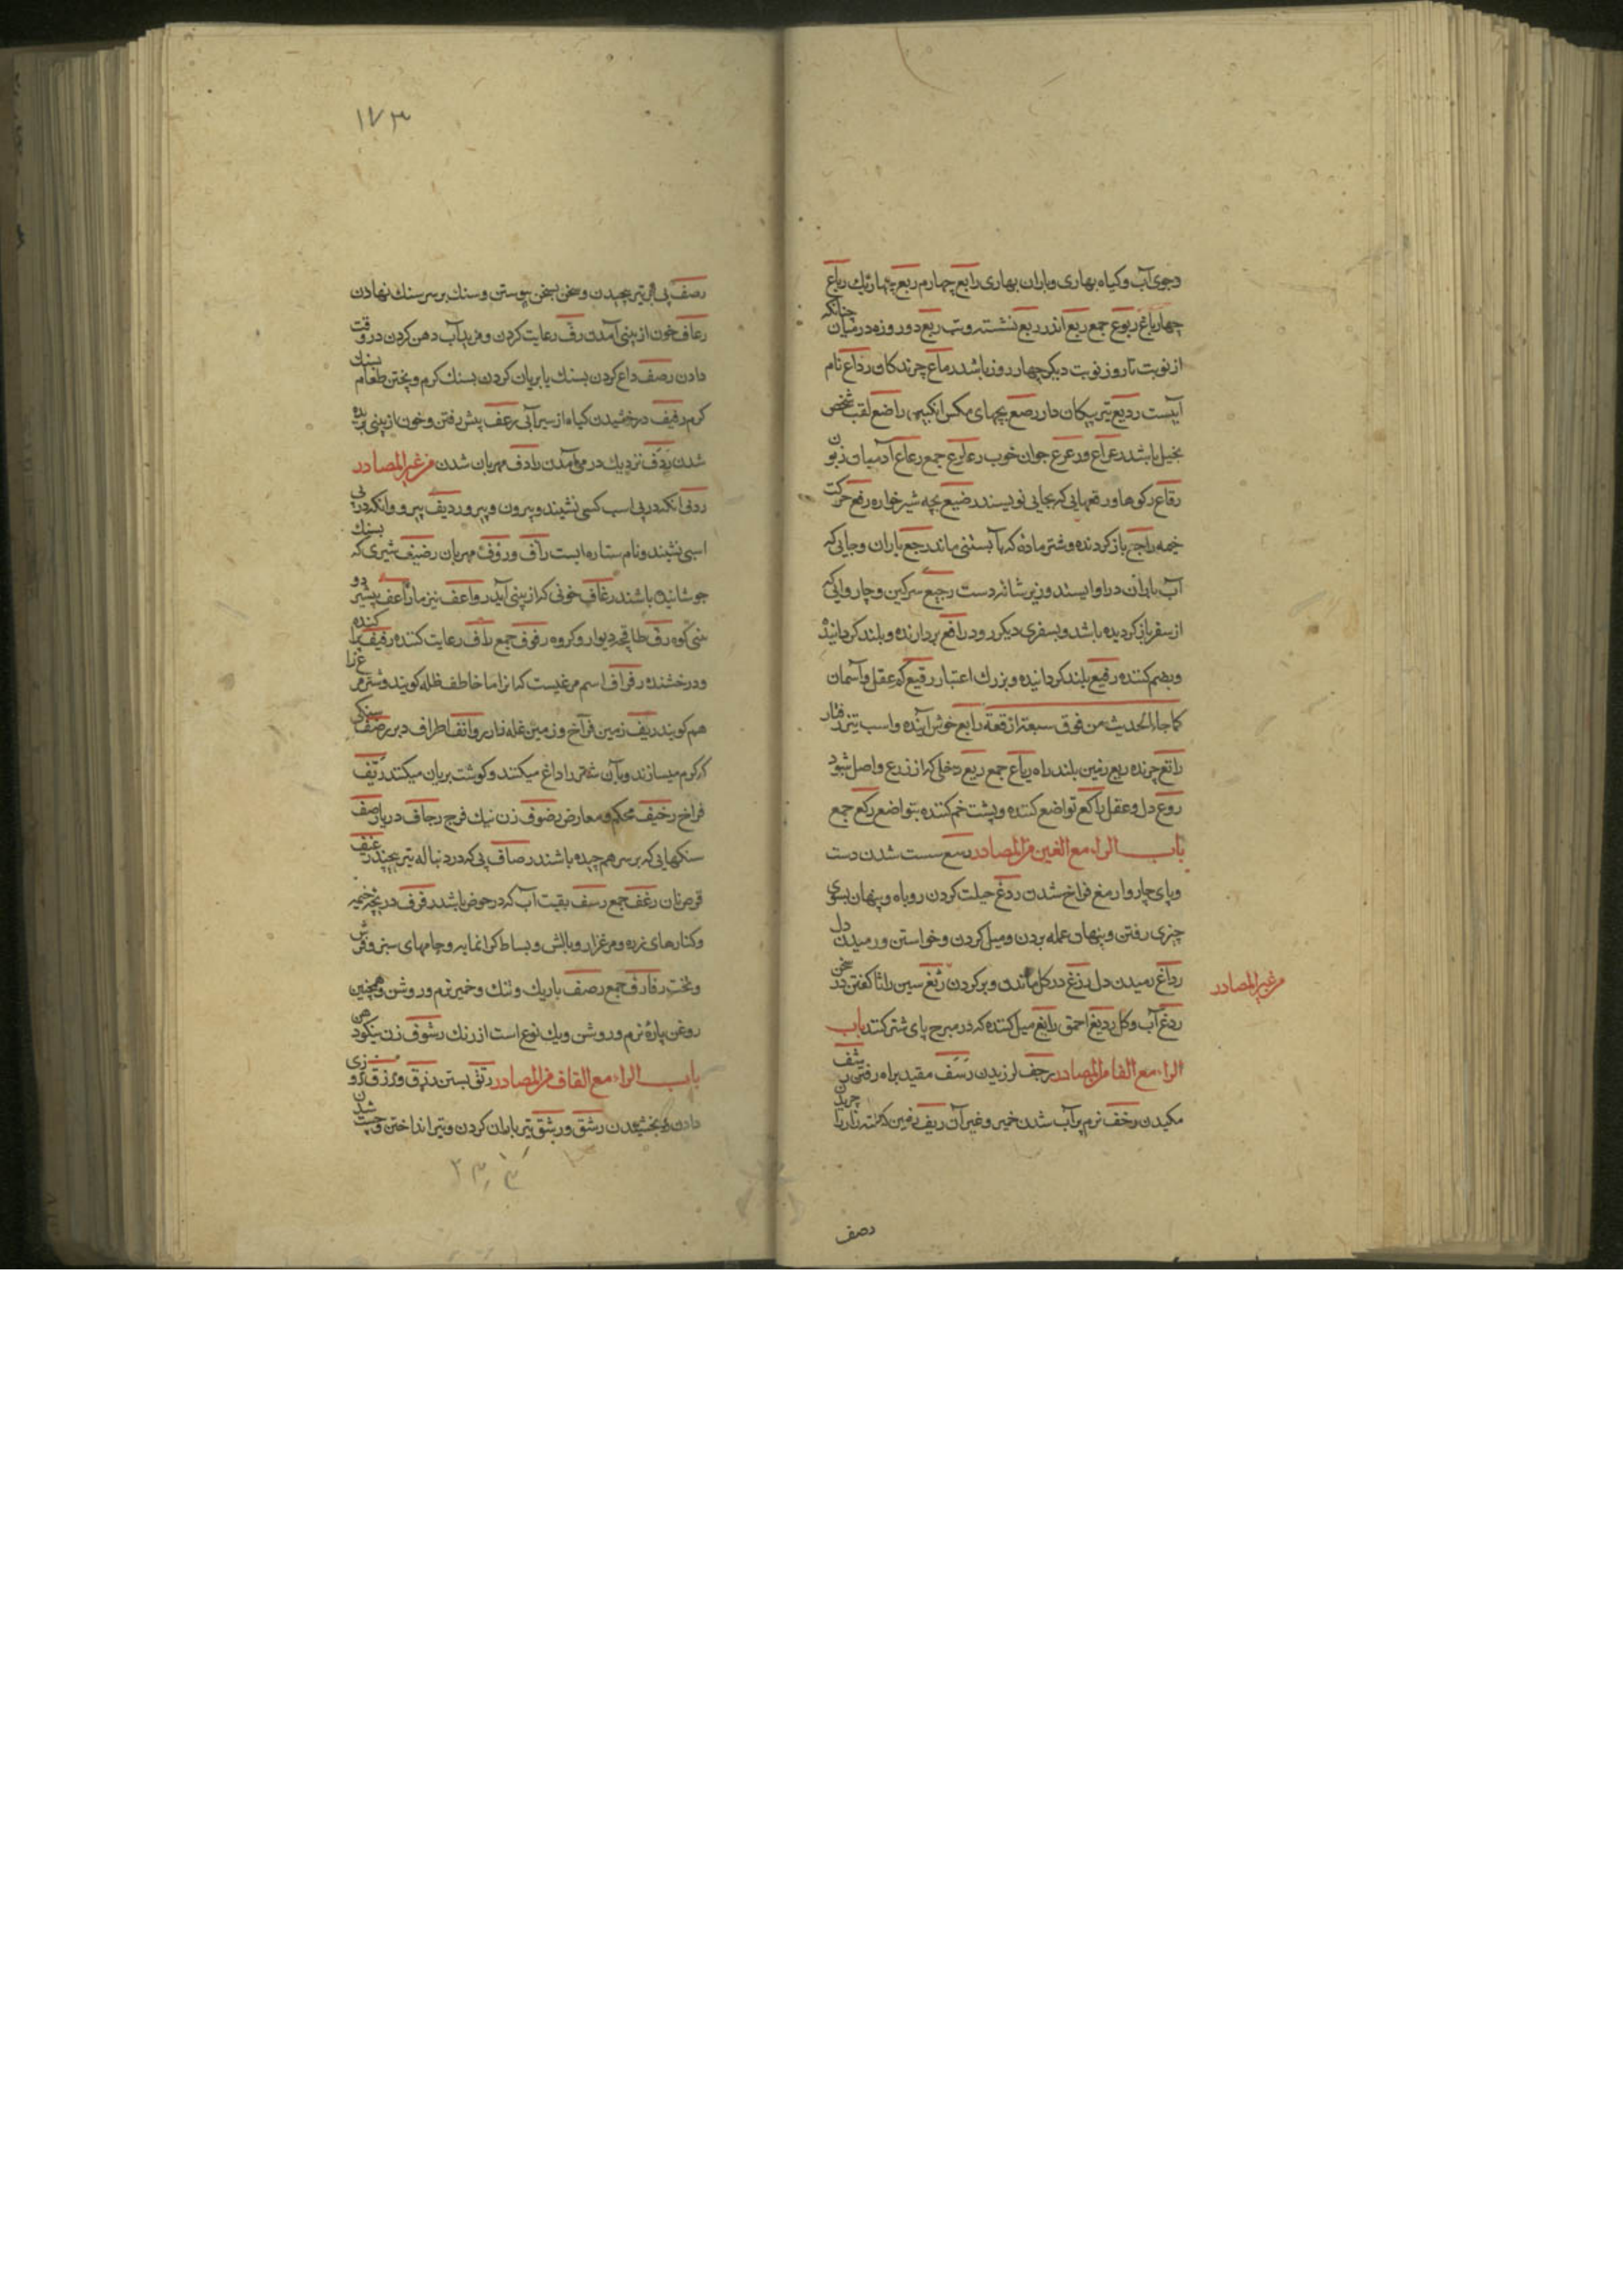 وجوی آب و کیاه بهاری و باران بهاری رابع چهارم ربع چهار یك رباع
چهار باغ ربوع جمع ربع اندر ربع نشسته و تب ربع دو روزه در میان چنانکه
از نوبت تا روز نوبت دیکر چهار روز باشد رماع چرند کان رداع نام
آبیست ردیع تیر پیکان دار رصع بچهای مکس انکبین راضع لقب شخص
بخیل باشد رعراع و رعرع جوان خوب رعارع جمع رعاع آدمیان زبون
رقاع رکوها و رقعهایی که بجایی نویسند رضیع بچه شیر خواره رفع حرکت
خیمه راجع باز کردنده و شتر ماده که بآبستنی ماند رجع باران و جایی که
آب باران در او ایستد و زیر شانه دست رجیع سرکین و چاروایی که
از سفر باز کردیده باشد و بسفری دیکر رود رافع بردارنده و بلند کرداننده
وبضم کننده رفیع بلند کردانیده و بزرك اعتبار رقیع کم عقل و آسمان
کما جاء الحدیث من فوق سبعة ارقعة رایع خوش آینده و اسب تیز رفتار
راتع چرنده ریع زمین بلند راه ریاع جمع ریع دخلی که از زرع واصل شود
روع دل و عقل راکع تواضع کننده و پشت خم کننده بتواضع رکع جمع
باب الراء مع الغین من المصادر رسغ سست شدن دست
و پای چاروا رمغ فراخ شدن ردغ حیلت کردن روباه و پنهان بسوی
چیزی رفتن و پنهان عمله بردن و میل کردن و خواستن و رمیدن دل
رداغ رمیدن دل رزغ در کل ماندن و بر کردن رثغ سین را ثا کفتن در سخن
من غیر المصادر
ردغ آب و کل ردیغ احمق رایغ میل کننده که در مبرح پای شتر کنند باب
الراء مع الفا من المصادر رجف لرزیدن رسف مقید براه رفتن رشف
مکیدن رخف نرم پر آب شدن خمیر و غیر آن ریف زمین چریدن
رصف
۱۷۳
رصف پی بر تیر پیچیدن و سخن بسخن پیوستن و سنك بر سر سنك نهادن
رعاف خون از بینی آمدن رف رعایت کردن و مزید آب دهن کردن در وقت
دادن رصف داع کردن بسنك یا بریان کردن بسنك کرم و پختن طعام بسنك
کرم رفیف درخشیدن کیاه از سیرآبی رعف پیش رفتن و خون از بینی
شدن ردف نزدیك در می آمدن رادف مهربان شدن من غیر المصادر
ردف آنکه در پی اسب کسی نشیند و پیرو ردیف پیرو و آنکه در پی
اسبی نشیند و نام ستاره ایست رأف و رؤف مهربان رضیف شیری که بسنك
جوشانیده باشند رعاف خونی که از بینی آید رواعف نیزها راعف پیشرو
بینی کوه رف طاقچه دیوار و کروه رفوف جمع راف رعایت کننده رفیف
و درخشنده رفراف اسم مرغیست که انرا ما خاطف ظله کویند و شتر مرغ را
هم کویند ریف زمین فراخ و زمین غله زار روانف اطراف دبر رضف سنکی
که کرم میسازند و بآن شتر را داغ میکنند و کوشت بریان میکنند
فراخ رخیف محکم و معارض رضوف زن نیك فرج رجاف دریا رصف
سنکهایی که بر سر هم چیده باشند رصاف پی که در دنباله تیر پیچند رغیف
قرص نان رغف جمع رسف بقیت آب که در حوض باشد رفرف دریچه خیمه
و کنارهای زره و مرغزار و بالش و بساط کرانمایه و جامهای سبز و فرش
و تخت رفارف جمع رصف باریك و تنك و خمیر نرم و روشن و همچنین
روغن پاره نرم و روشن و یك نوع است از رنك رشوف زن نیکو دهن
باب الراء مع القاف من المصادر رتق بستن رزق و رزق روزی
دادن و بخشیدن رشق و رشق تیر باران کردن و تیر انداختن و چست شدن